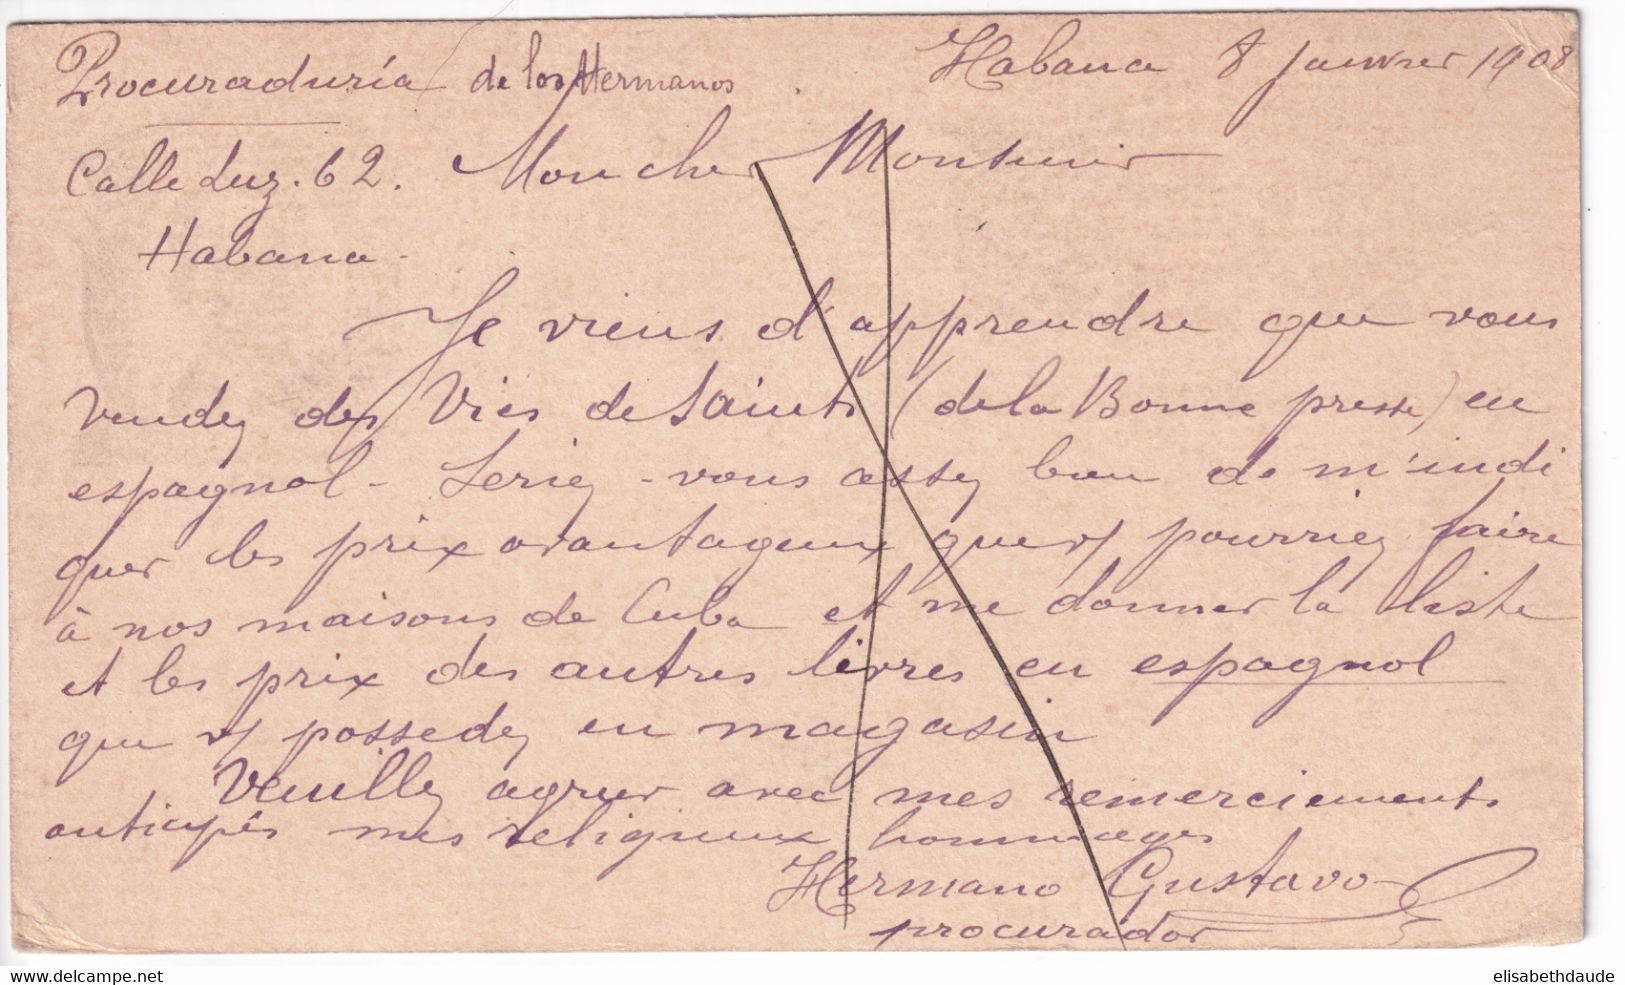 Procuraduría de los Hermanos
Habana 8 janvier 1908
Calle Luz. 62. Mon cher Monsieur
Habana -
Je viens d'apprendre que vous
vendez des Vies de Saints (de la Bonne presse) en
espagnol - Seriez-vous assez bon de m'indi
quer les prix avantageux que v/ pourriez faire
à nos maisons de Cuba et me donner la liste
et les prix des autres livres en espagnol
que v/ possedez en magasin
Veuillez agréer avec mes remerciements
anticipés mes religieux hommages
Hermano Gustavo
procurador
elisabethdaude
www.delcampe.net